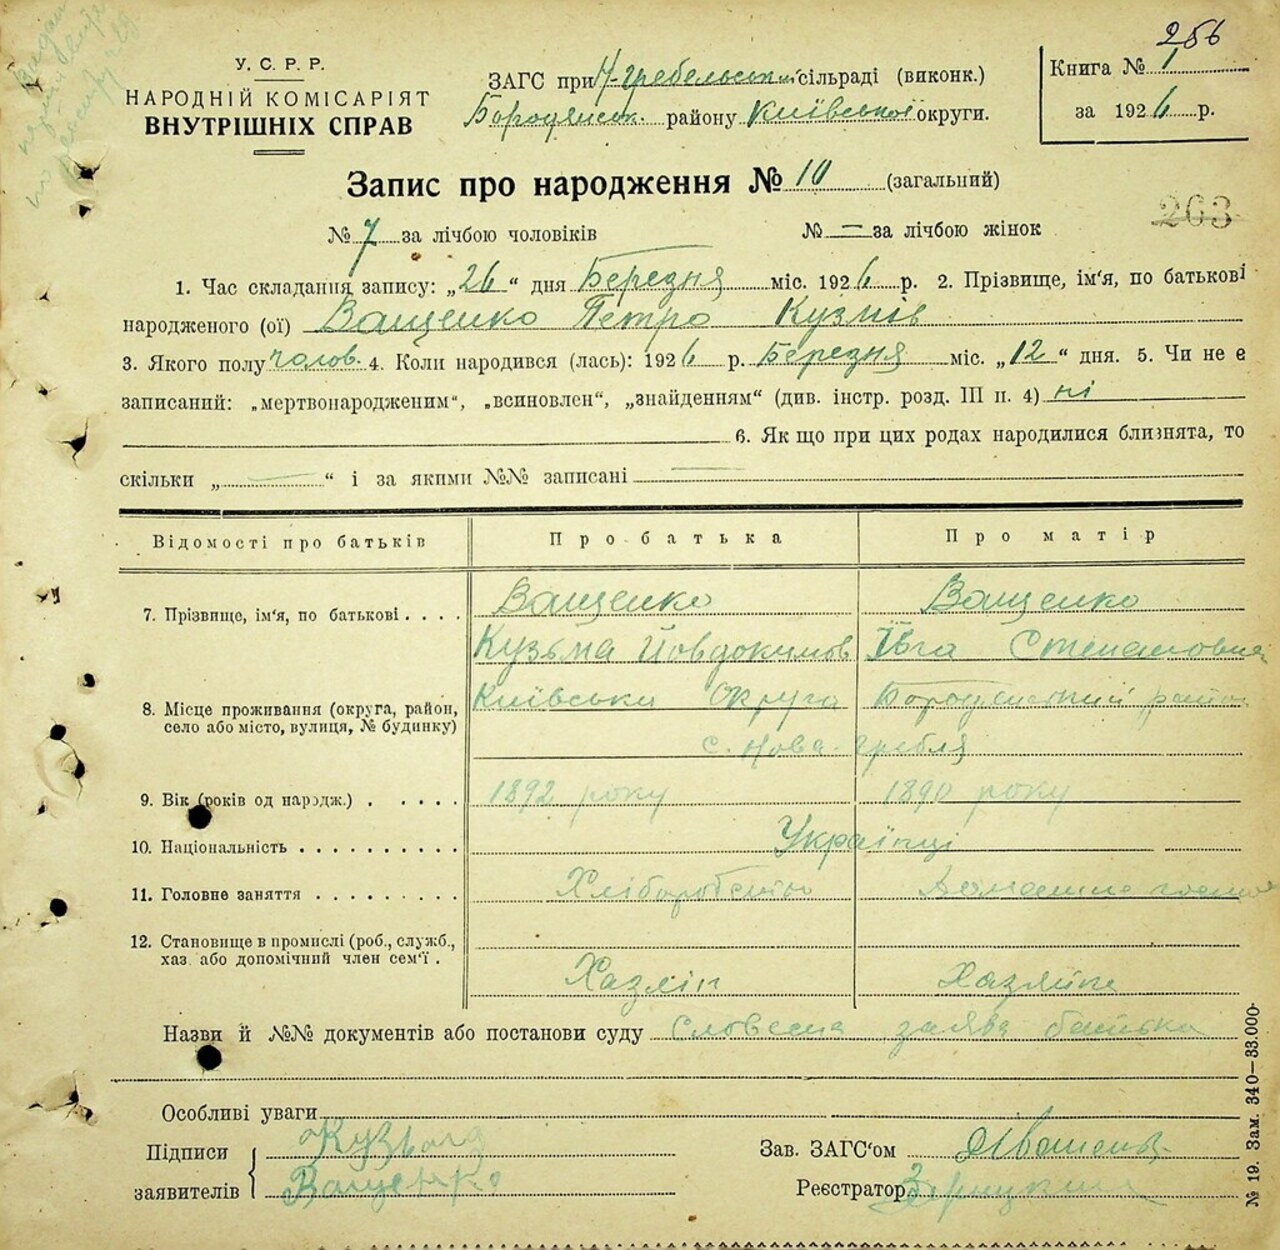 256
У. С. Р. Р.
НАРОДНІЙ КОМІСАРІЯТ
ВНУТРІШНІХ СПРАВ
ЗАГС при Н-гребельськ. сільраді (виконк.)
Бородянськ. району Київської округи.
Книга № 1
за 1926 р.
Запис про народження № 10 (загальний)
263
№ 7 за лічбою чоловіків № — за лічбою жінок
1. Час складання запису: „26“ дня Березня міс. 1926 р. 2. Прізвище, ім‘я, по батькові
народженого (ої) Ващенко Петро Кузмів
3. Якого полу чолов. 4. Коли народився (лась): 1926 р. Березня міс. „12“ дня. 5. Чи не є
записаний: „мертвонародженим“, „всиновлен“, „знайденням“ (див. інстр. розд. III п. 4) ні
6. Як що при цих родах народилися близнята, то
скільки „ — “ і за якими №№ записані —
Відомості про батьків Про батька Про матір
7. Прізвище, ім‘я, по батькові . . . . Ващенко Ващенко
Кузьма Йовдокимов Ївга Степановна
8. Місце проживання (округа, район, село або місто, вулиця, № будинку) Київська Округа Бородянський район
с. Нова-гребля
9. Вік (років од нардж.) . . . . . 1892 року 1890 року
10. Національність . . . . . . . . . . Українці
11. Головне заняття . . . . . . . . . Хліборобство Домашнє
12. Становище в промислі (роб., служб., хаз. або допомічний член сем‘ї . Хазяїн Хазяйка
Назви й №№ документів або постанови суду Словесна заява батька
Особливі уваги
Підписи заявителів Кузьма
Ващенко
Зав. ЗАГС‘ом
Реєстратор
№ 19. Зам. 340–33.000